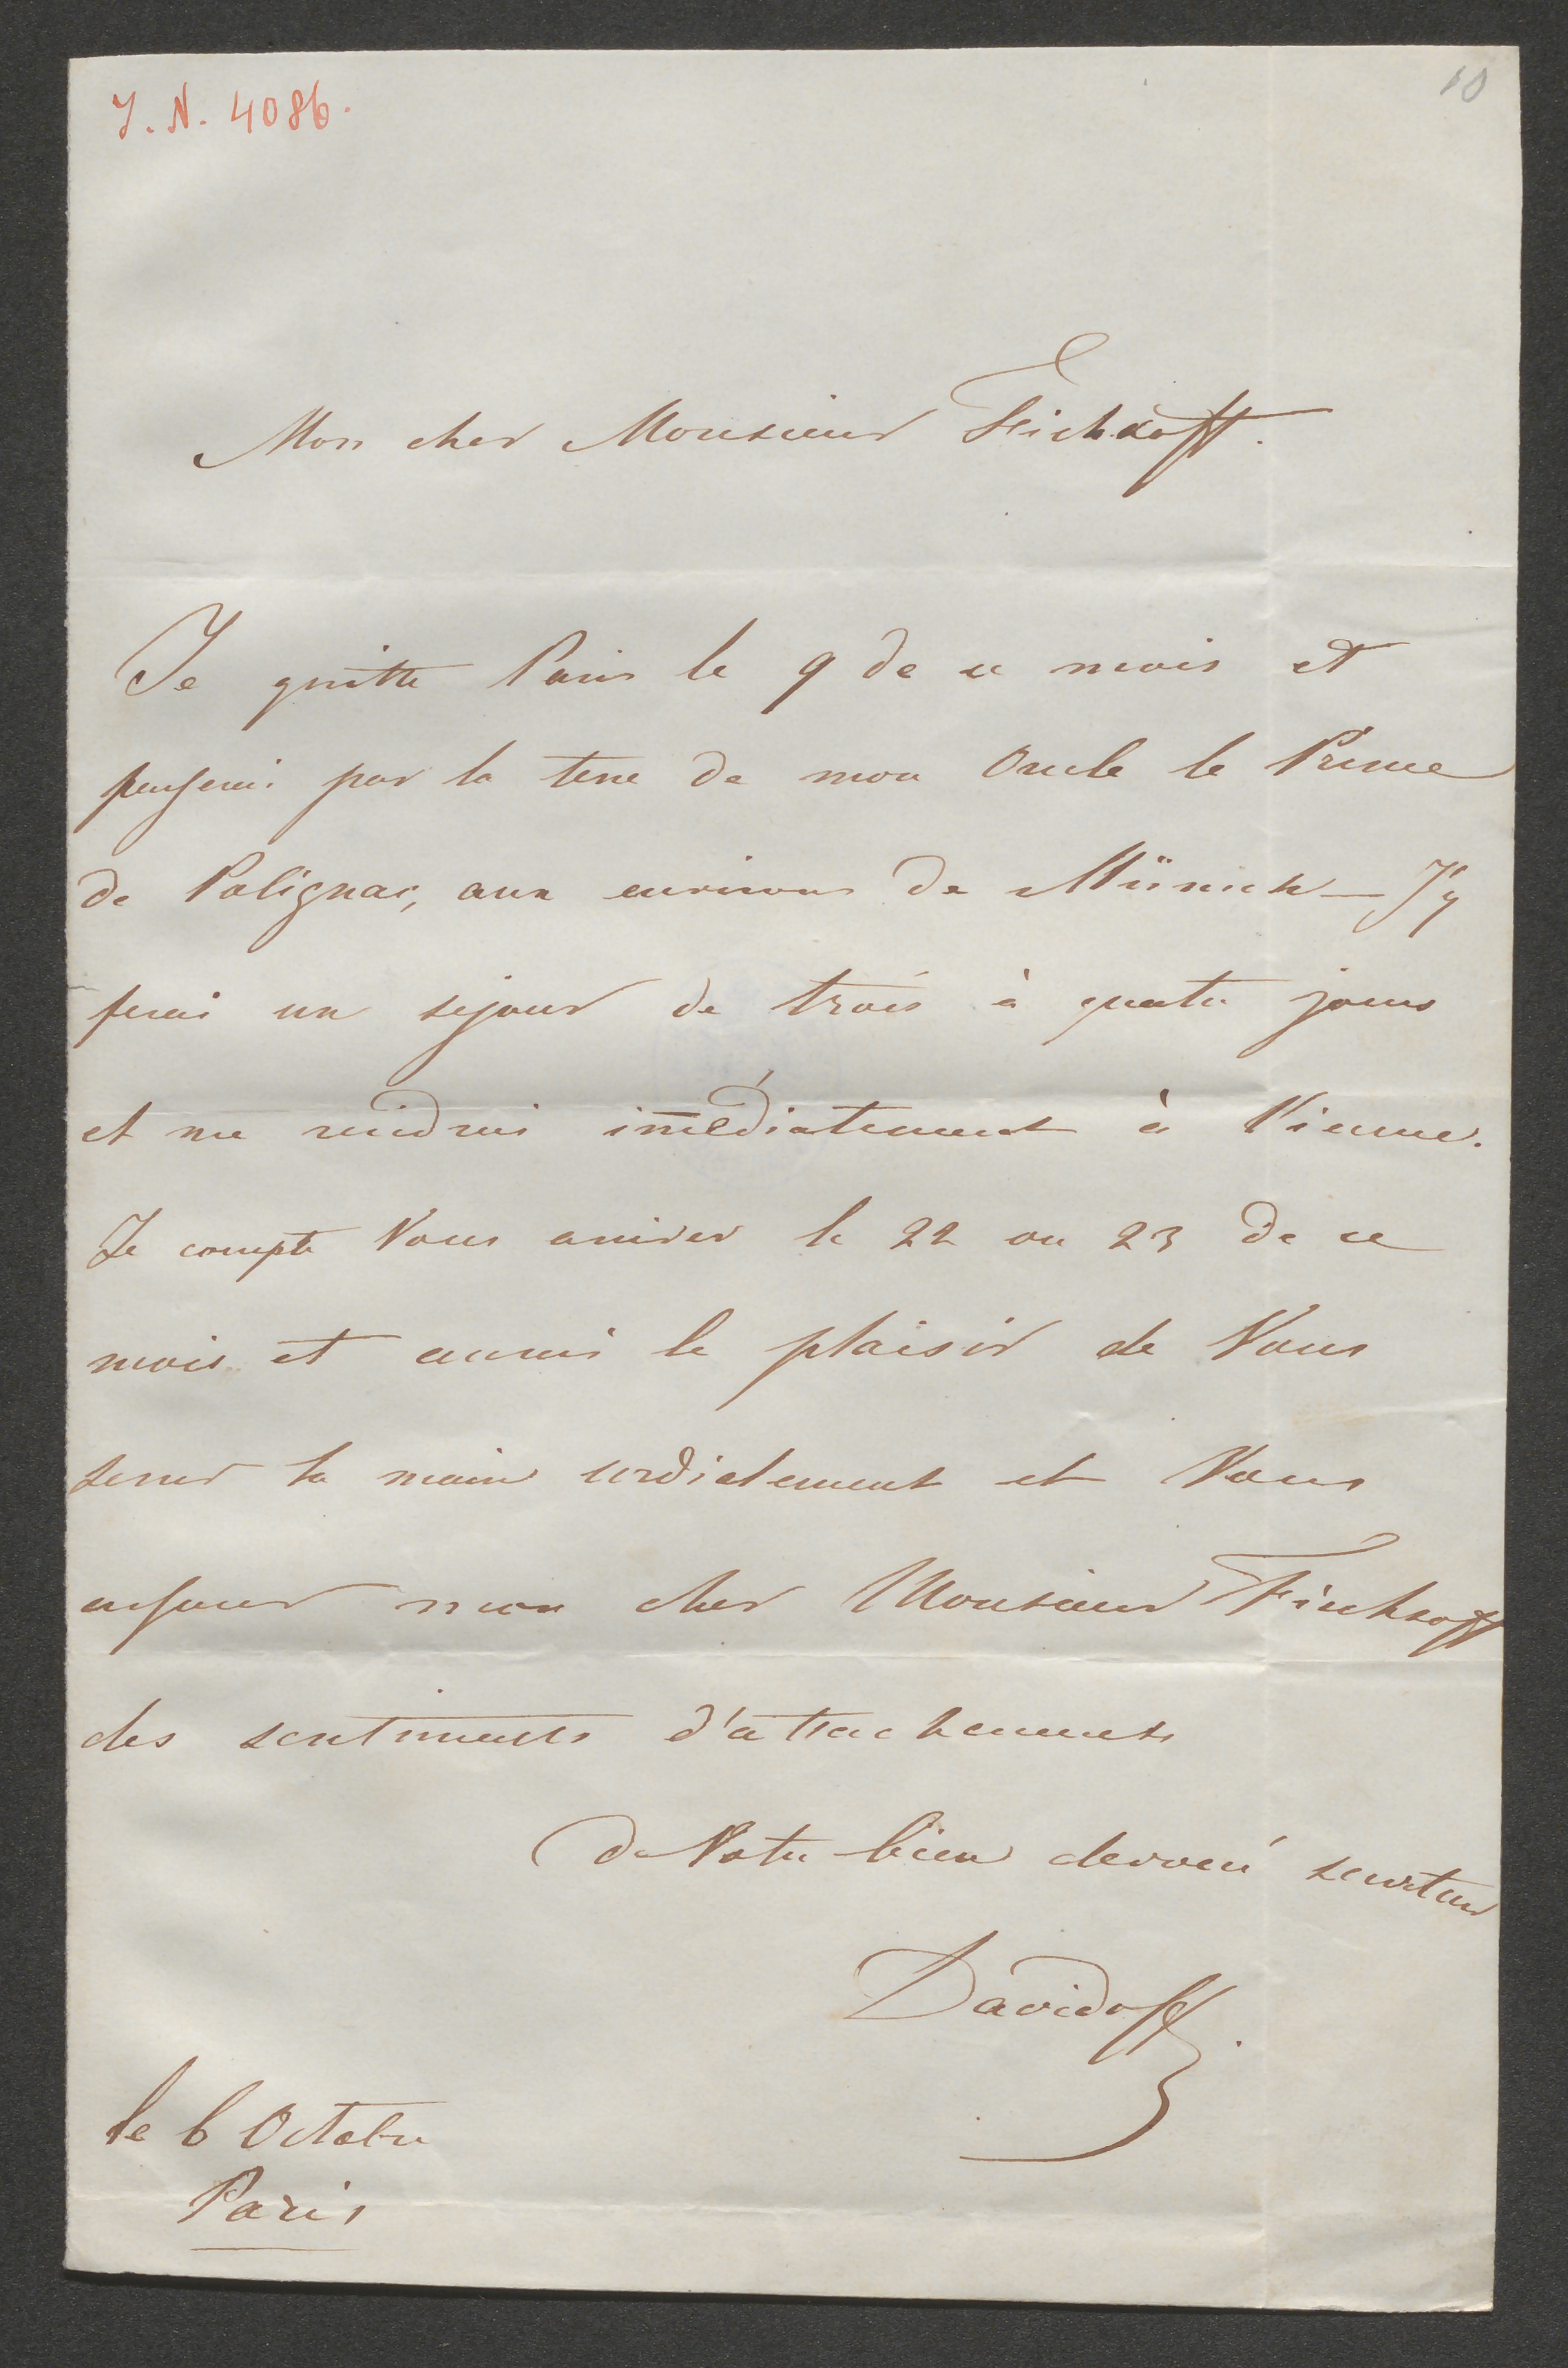 J. N. 4086.
10
Mon cher Monsieur Fichhoff.
Je quitte Paris le 9 de ce mois et
passerai par la terre de mon Oncle le Prince
de Polignac, aux environs de Münich – J'y
ferai un sejour de trois à quatre jours
et me rendrai im̄édiatement à Vienne.
Je compte Vous arriver le 22 ou 23 de ce
mois et aurai le plaisir de Vous
serrer la main cordialement et Vous
assurer mon cher Monsieur Fischhoff
des sentiments d'attachements
de Votre bien devoué serviteur
Davidoff.
le 6 Octobre
Paris